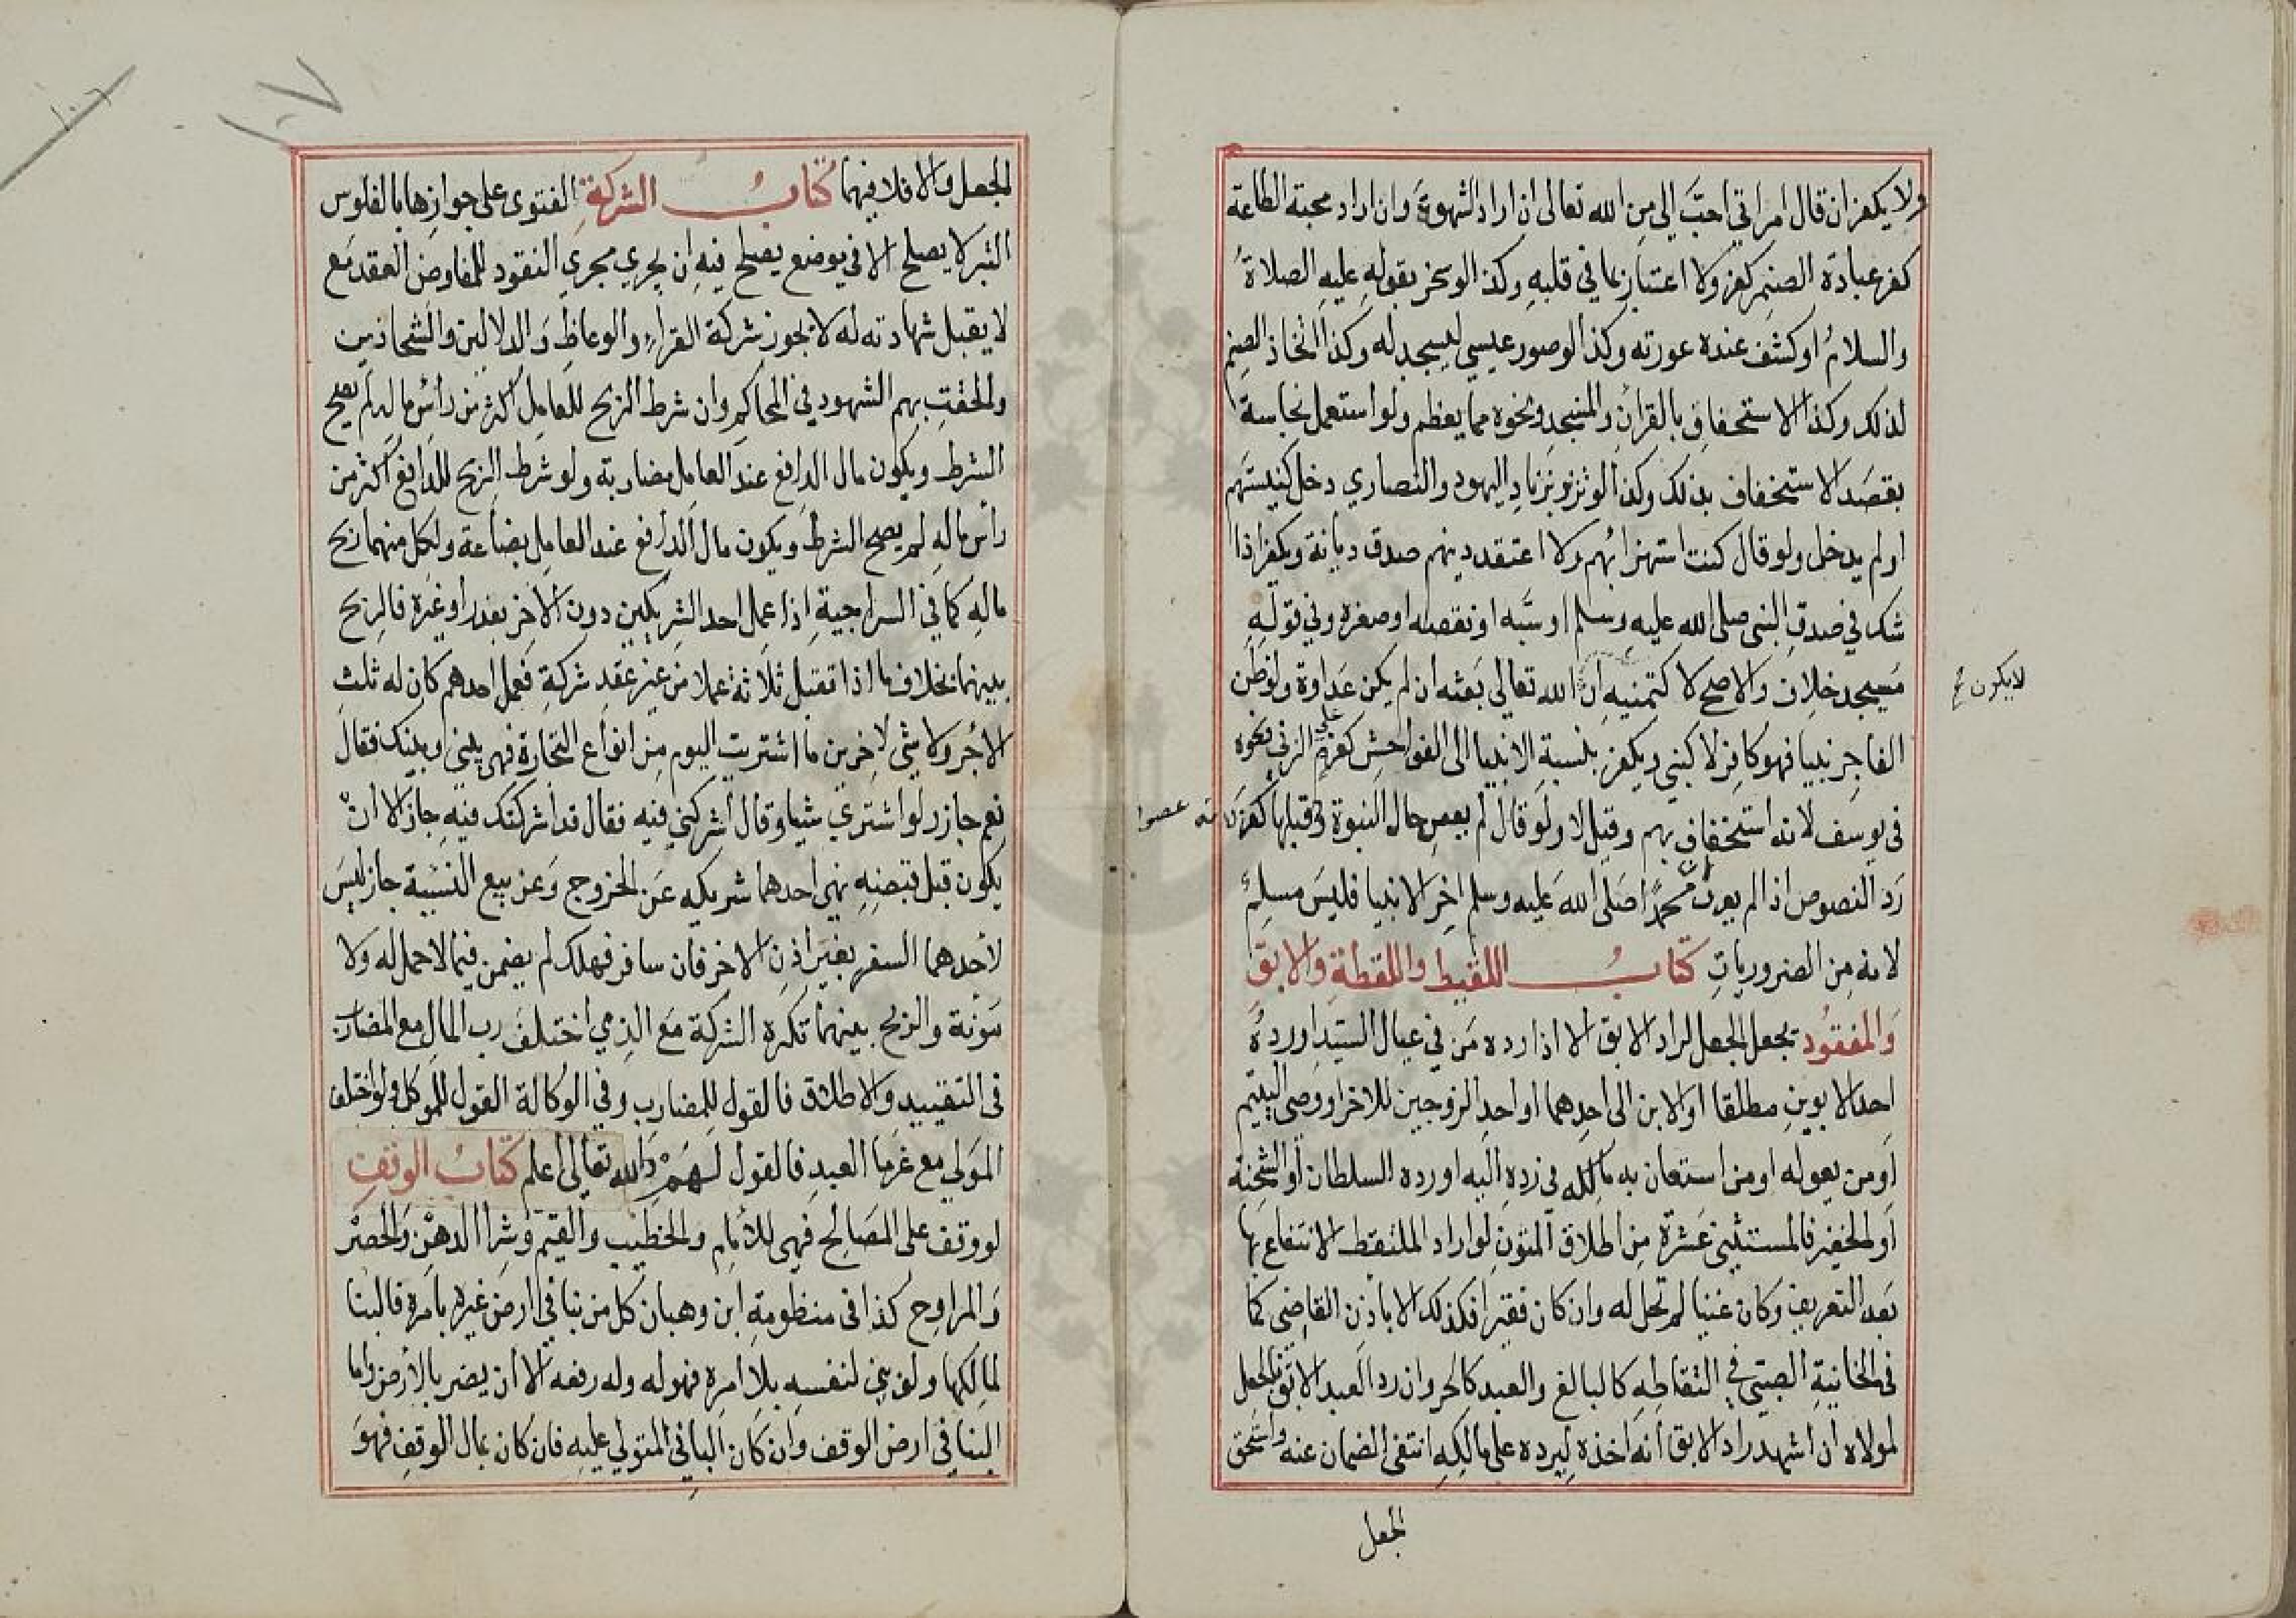 ولا يكفر ان قال امراتي احبّ الي من الله تعالى ان اراد الشهوة وان اراد محبة الطاعة
كفر عبادة الصنم كفر ولا اعتبار بما في قلبه وكذا لو سخر بقوله عليه الصلاة
والسلام او كشف عنده عورته وكذا لو صور عيسي ليسجد له وكذا اتخاذ الصنم
لذلك وكذا الاستخفاف بالقران والمسجد ونحوه مما يعظم ولو استعمل نجاسة
بقصد الاستخفاف بذلك وكذا لو تزنر بزنار اليهود والنصاري دخل كنيستهم
او لم يدخل ولو قال كنت استهزا بهم ولا اعتقد دينهم صدق ديانة ويكفر اذا
شك في صدق النبي صلى الله عليه وسلم او سبّه او نقصه او صغره وفي قوله
مسيجد خلاف والاصح لا كتمنيه ان الله تعالى بعثه ان لم يكن عداوة ولو ظن
لا يكون
الفاجر نبيا فهو كافر لا كبني ويكفر بنسبة الانبيا الى الفواحش كعزم على الزني ونحوه
في يوسف لانه استخفاف بهم وقيل لا ولو قال لم يعص حال النبوة وقبلها كفر لانه
رد النصوص اذا لم يعرف ان محمدا صلى الله عليه وسلم اخر الانبيا فليس مسلم
لانه من الضروريات كتاب اللقيط واللقطة والابق
والمفقود يجعل الجعل لراد الابق الا اذا رده من في عيال السيد او رده
احد الابوين مطلقا او الابن الى احدهما او احد الزوجين للاخر او وصي اليتيم
او من يعوله او من استعان به مالكه في رده اليه او رده السلطان او الشحنة
او الخفير فالمستثني عشرة من اطلاق المتون لو اراد الملتقط الانتفاع بها
بعد التعريف وكان غنيا لم تحل له وان كان فقيرا فكذلك الا باذن القاضي كما
في الخانية الصبي في التقاطه كالبالغ والعبد كالحر وان رد العبد الابق فالجعل
لمولاه ان اشهد راد الابق انه اخذه ليرده على مالكه انتفى الضمان عنه واستحق
الجعل
١٠٦
١٠٧
الجعل والا فلا فيهما كتاب الشركة الفتوى على جوازها بالفلوس
التبر لا يصلح الا في موضع يصلح فيه ان يجري مجري النقود للمفاوض العقد مع
لا يقبل شهادته له لا يجوز شركة القراء والوعاظ والدلالين والشحاذين
والحقت بهم الشهود في المحاكم وان شرط الربح للعامل اكثر من رأس ماله لم يصح
الشرط ويكون مال الدافع عند العامل مضاربة ولو شرط الربح للدافع اكثر من
رأس ماله لم يصح الشرط ويكون مال الدافع عند العامل بضاعة ولكل منهما ربح
ماله كما في السراجية اذا عمل احد الشريكين دون الاخر بعذر او غيره فالربح
بينهما بخلاف ما اذا تقبل ثلاثة عملا من غير عقد شركة فعمل احدهم كان له ثلث
الأجر ولا شي لاخرين ما اشتريت اليوم من انواع التجارة فهو بيني وبينك فقال
نعم جاز ولو اشتري شيا وقال اشركني فيه فقال قد اشركتك فيه جاز الا ان
يكون قبل قبضه نهى احدهما شريكه عن الخروج وعن بيع النسية جاز ليس
لأحدهما السفر بغير اذن الاخر فان سافر فهلك لم يضمن فيما لا حمل له ولا
مؤنة والربح بينهما تكره الشركة مع الذمي اختلف رب المال مع المضارب
في التقييد والاطلاق فالقول للمضارب وفي الوكالة القول للموكل ولو اختلف
المولي مع غرما العبد فالقول لهم والله تعالى اعلم كتاب الوقف
لو وقف على المصالح فهي للأمام والخطيب والقيم وشرا الدهن والحصر
والمراوح كذا في منظومة ابن وهبان كل من بنا في ارض غيره بامره فالبنا
لمالكها ولو بني لنفسه بلا امره فهو له وله رفعه الا أن يضر بالأرض واما
البنا في ارض الوقف وان كان الباني المتولي عليه فان كان بمال الوقف فهو